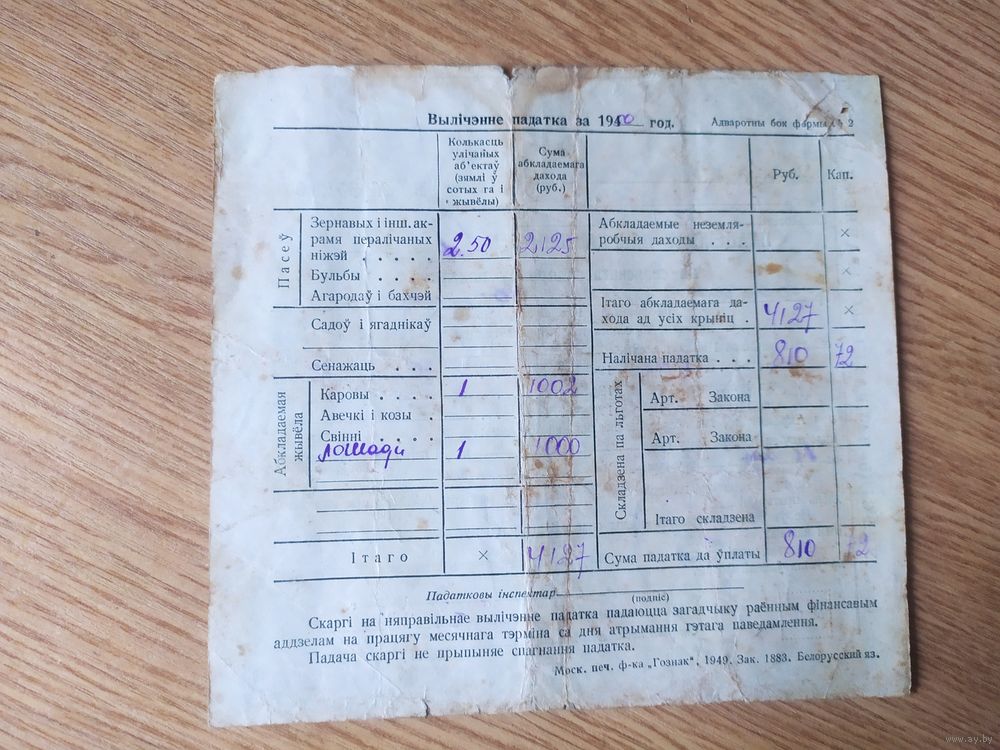 Вылічэнне падатка за 1950 год.
Адваротны бок формы № 2
Колькасць улічаных аб'ектаў (зямлі ў сотых га і жывёлы)
Сума абкладаемага дахода (руб.)
Руб.
Кап.
Пасеў
Зернавых і інш. ак-
рамя пералічаных
ніжэй . . . . . 2.50 2125
Бульбы . . . . .
Агародаў і бахчэй
Садоў і ягаднікаў
Сенажаць . . .
Абкладаемая жывёла
Каровы . . . . 1 1002
Авечкі і козы .
Свінні . . . .
лошади 1 1000
Ітаго × 4127
Абкладаемые неземля-
робчыя даходы . . . ×
×
Ітаго абкладаемага да-
хода ад усіх крыніц . 4127 ×
Налічана падатка . . . 810 72
Складзена па льготах
Арт. Закона
Арт. Закона
Ітаго складзена
Сума падатка да ўплаты 810 72
Падатковы інспектар
(подпіс)
Скаргі на няправільнае вылічэнне падатка падаюцца загадчыку раённым фінансавым
аддзелам на працягу месячнага тэрміна са дня атрымання гэтага паведамлення.
Падача скаргі не прыпыняе спагнання падатка.
Моск. печ. ф-ка „Гознак", 1949. Зак. 1883. Белорусский яз.
www.ay.by